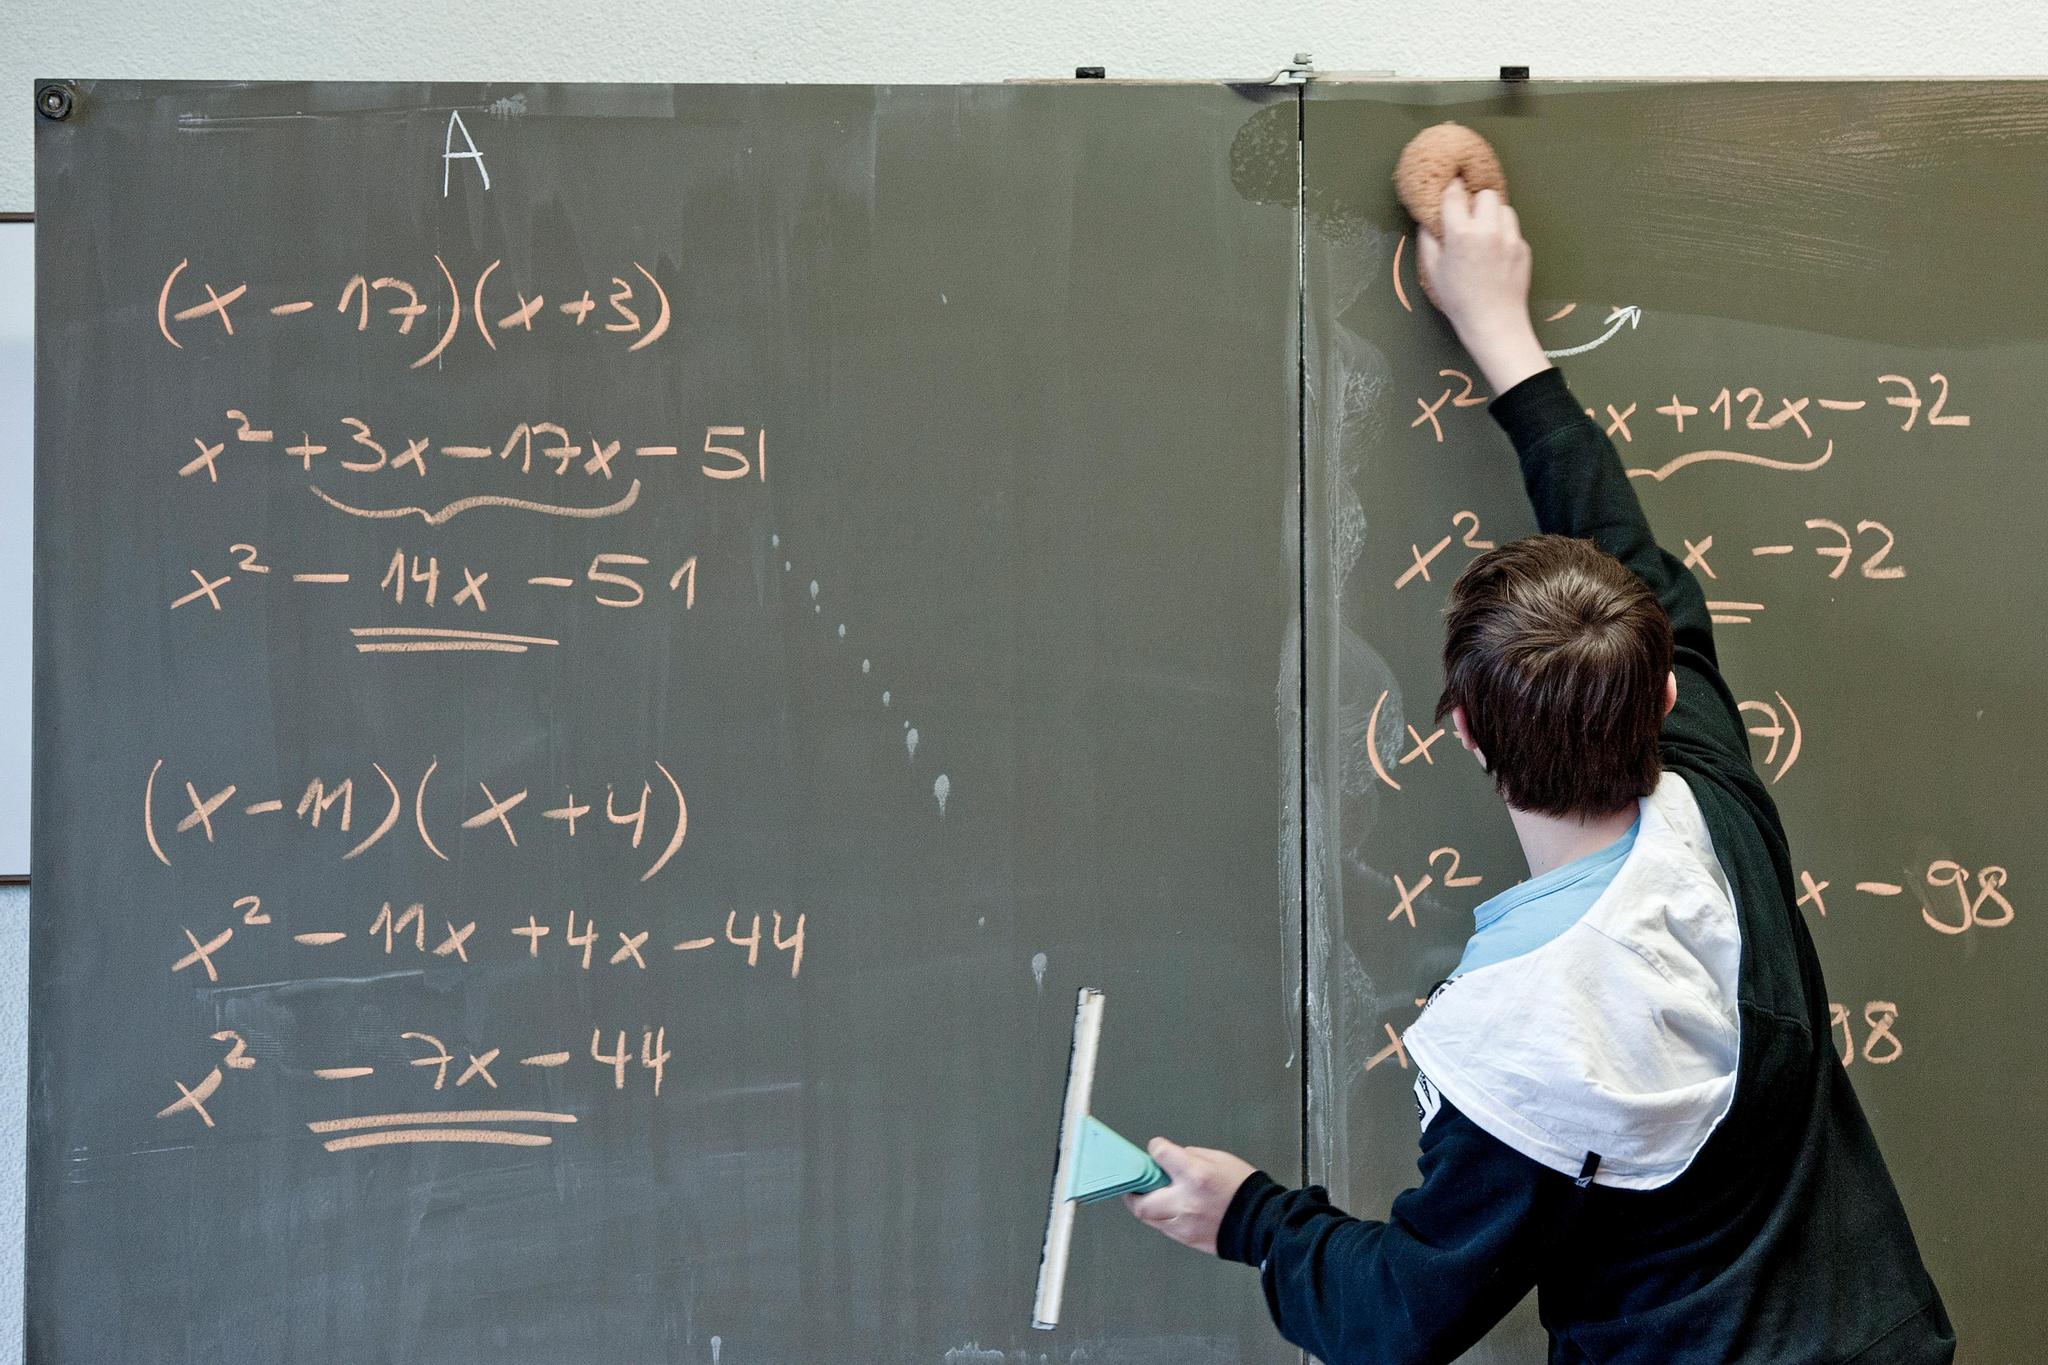 A
(x - 17)(x + 3)
x² + 3x - 17x - 51
x² - 14x - 51
(x - 11)(x + 4)
x² - 11x + 4x - 44
x² - 7x - 44
(
x² x + 12x - 72
x² x - 72
(x 7)
x² x - 98
x 98